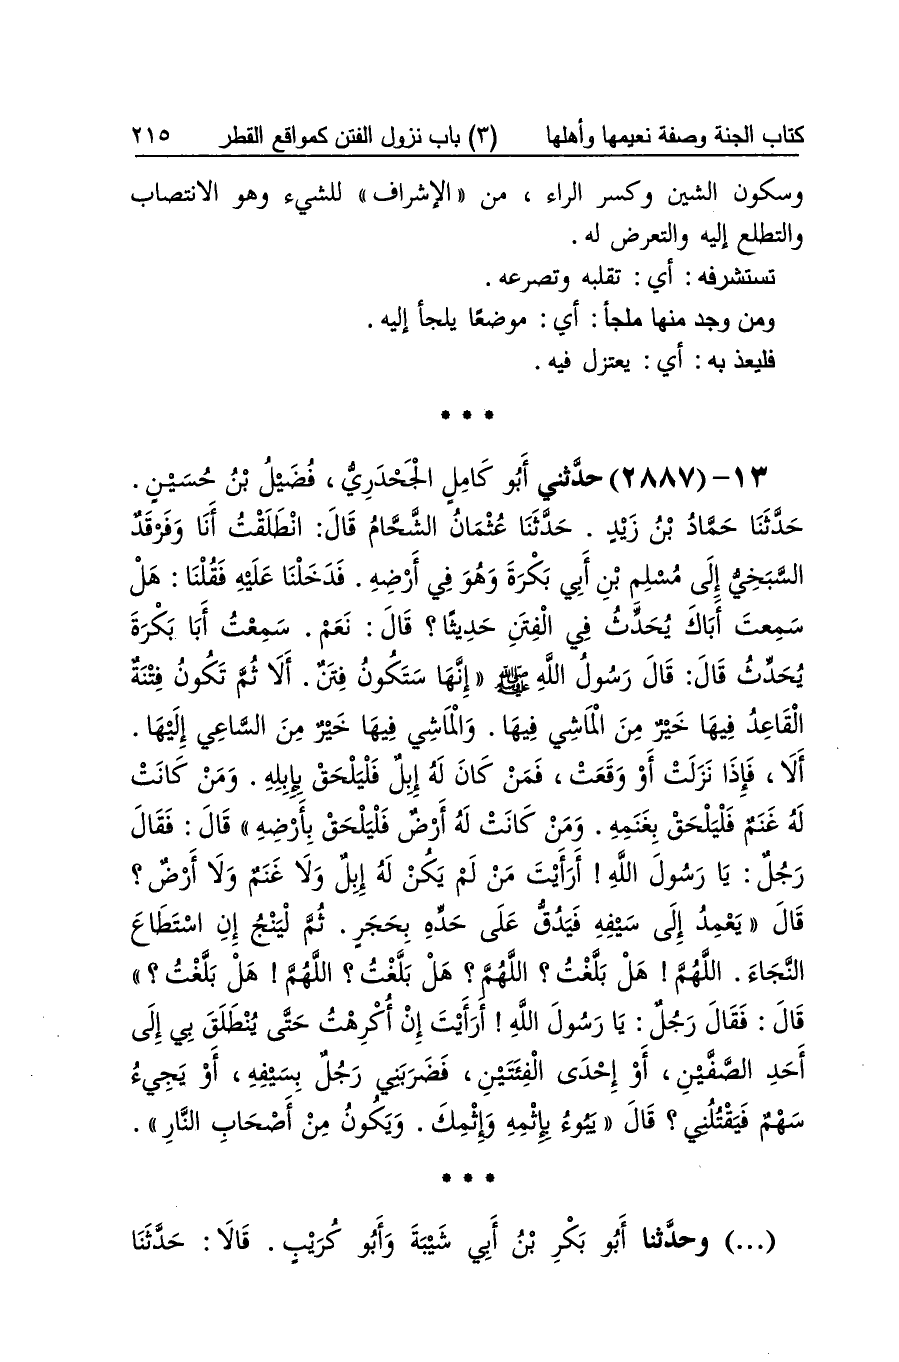 كتاب الجنة وصفة نعيمها وأهلها (٣) باب نزول الفتن كمواقع القطر ٢١٥
وسكون الشين وكسر الراء ، من «الإشراف» للشيء وهو الانتصاب
والتطلع إليه والتعرض له .
تستشرفه : أي : تقلبه وتصرعه .
ومن وجد منها ملجأ : أي : موضعًا يلجأ إليه .
فليعذ به : أي : يعتزل فيه .
* * *
١٣- (٢٨٨٧) حدَّثني أَبُو كَامِلٍ الْجَحْدَرِيُّ ، فُضَيْلُ بْنُ حُسَيْنٍ .
حَدَّثَنَا حَمَّادُ بْنُ زَيْدٍ . حَدَّثَنَا عُثْمَانُ الشَّحَّامُ قَالَ: انْطَلَقْتُ أَنَا وَفَرْقَدٌ
السَّبَخِيُّ إِلَى مُسْلِمِ بْنِ أَبِي بَكْرَةَ وَهُوَ فِي أَرْضِهِ . فَدَخَلْنَا عَلَيْهِ فَقُلْنَا : هَلْ
سَمِعتَ أَبَاكَ يُحَدِّثُ فِي الْفِتَنِ حَدِيثًا ؟ قَالَ : نَعَمْ . سَمِعْتُ أَبَا بَكْرَةَ
يُحَدِّثُ قَالَ: قَالَ رَسُولُ اللَّهِ ﷺ «إِنَّهَا سَتَكُونُ فِتَنٌ . أَلَا ثُمَّ تَكُونُ فِتْنَةٌ
الْقَاعِدُ فِيهَا خَيْرٌ مِنَ الْمَاشِي فِيهَا . وَالْمَاشِي فِيهَا خَيْرٌ مِنَ السَّاعِي إِلَيْهَا .
أَلَا ، فَإِذَا نَزَلَتْ أَوْ وَقَعَتْ ، فَمَنْ كَانَ لَهُ إِبِلٌ فَلْيَلْحَقْ بِإِبِلِهِ . وَمَنْ كَانَتْ
لَهُ غَنَمٌ فَلْيَلْحَقْ بِغَنَمِهِ . وَمَنْ كَانَتْ لَهُ أَرْضٌ فَلْيَلْحَقْ بِأَرْضِهِ» قَالَ : فَقَالَ
رَجُلٌ : يَا رَسُولَ اللَّهِ ! أَرَأَيْتَ مَنْ لَمْ يَكُنْ لَهُ إِبِلٌ وَلَا غَنَمٌ وَلَا أَرْضٌ ؟
قَالَ «يَعْمِدُ إِلَى سَيْفِهِ فَيَدُقُّ عَلَى حَدِّهِ بِحَجَرٍ . ثُمَّ لْيَنْجُ إِنِ اسْتَطَاعَ
النَّجَاءَ . اللَّهُمَّ ! هَلْ بَلَّغْتُ ؟ اللَّهُمَّ ؟ هَلْ بَلَّغْتُ ؟ اللَّهُمَّ ! هَلْ بَلَّغْتُ ؟»
قَالَ : فَقَالَ رَجُلٌ : يَا رَسُولَ اللَّهِ ! أَرَأَيْتَ إِنْ أُكْرِهْتُ حَتَّى يُنْطَلَقَ بِي إِلَى
أَحَدِ الصَّفَّيْنِ ، أَوْ إِحْدَى الْفِئَتَيْنِ ، فَضَرَبَنِي رَجُلٌ بِسَيْفِهِ ، أَوْ يَجِيءُ
سَهْمٌ فَيَقْتُلُنِي ؟ قَالَ «يَبُوءُ بِإِثْمِهِ وَإِثْمِكَ . وَيَكُونُ مِنْ أَصْحَابِ النَّارِ» .
* * *
(...) وحدَّثنا أَبُو بَكْرِ بْنُ أَبِي شَيْبَةَ وَأَبُو كُرَيْبٍ . قَالَا : حَدَّثَنَا